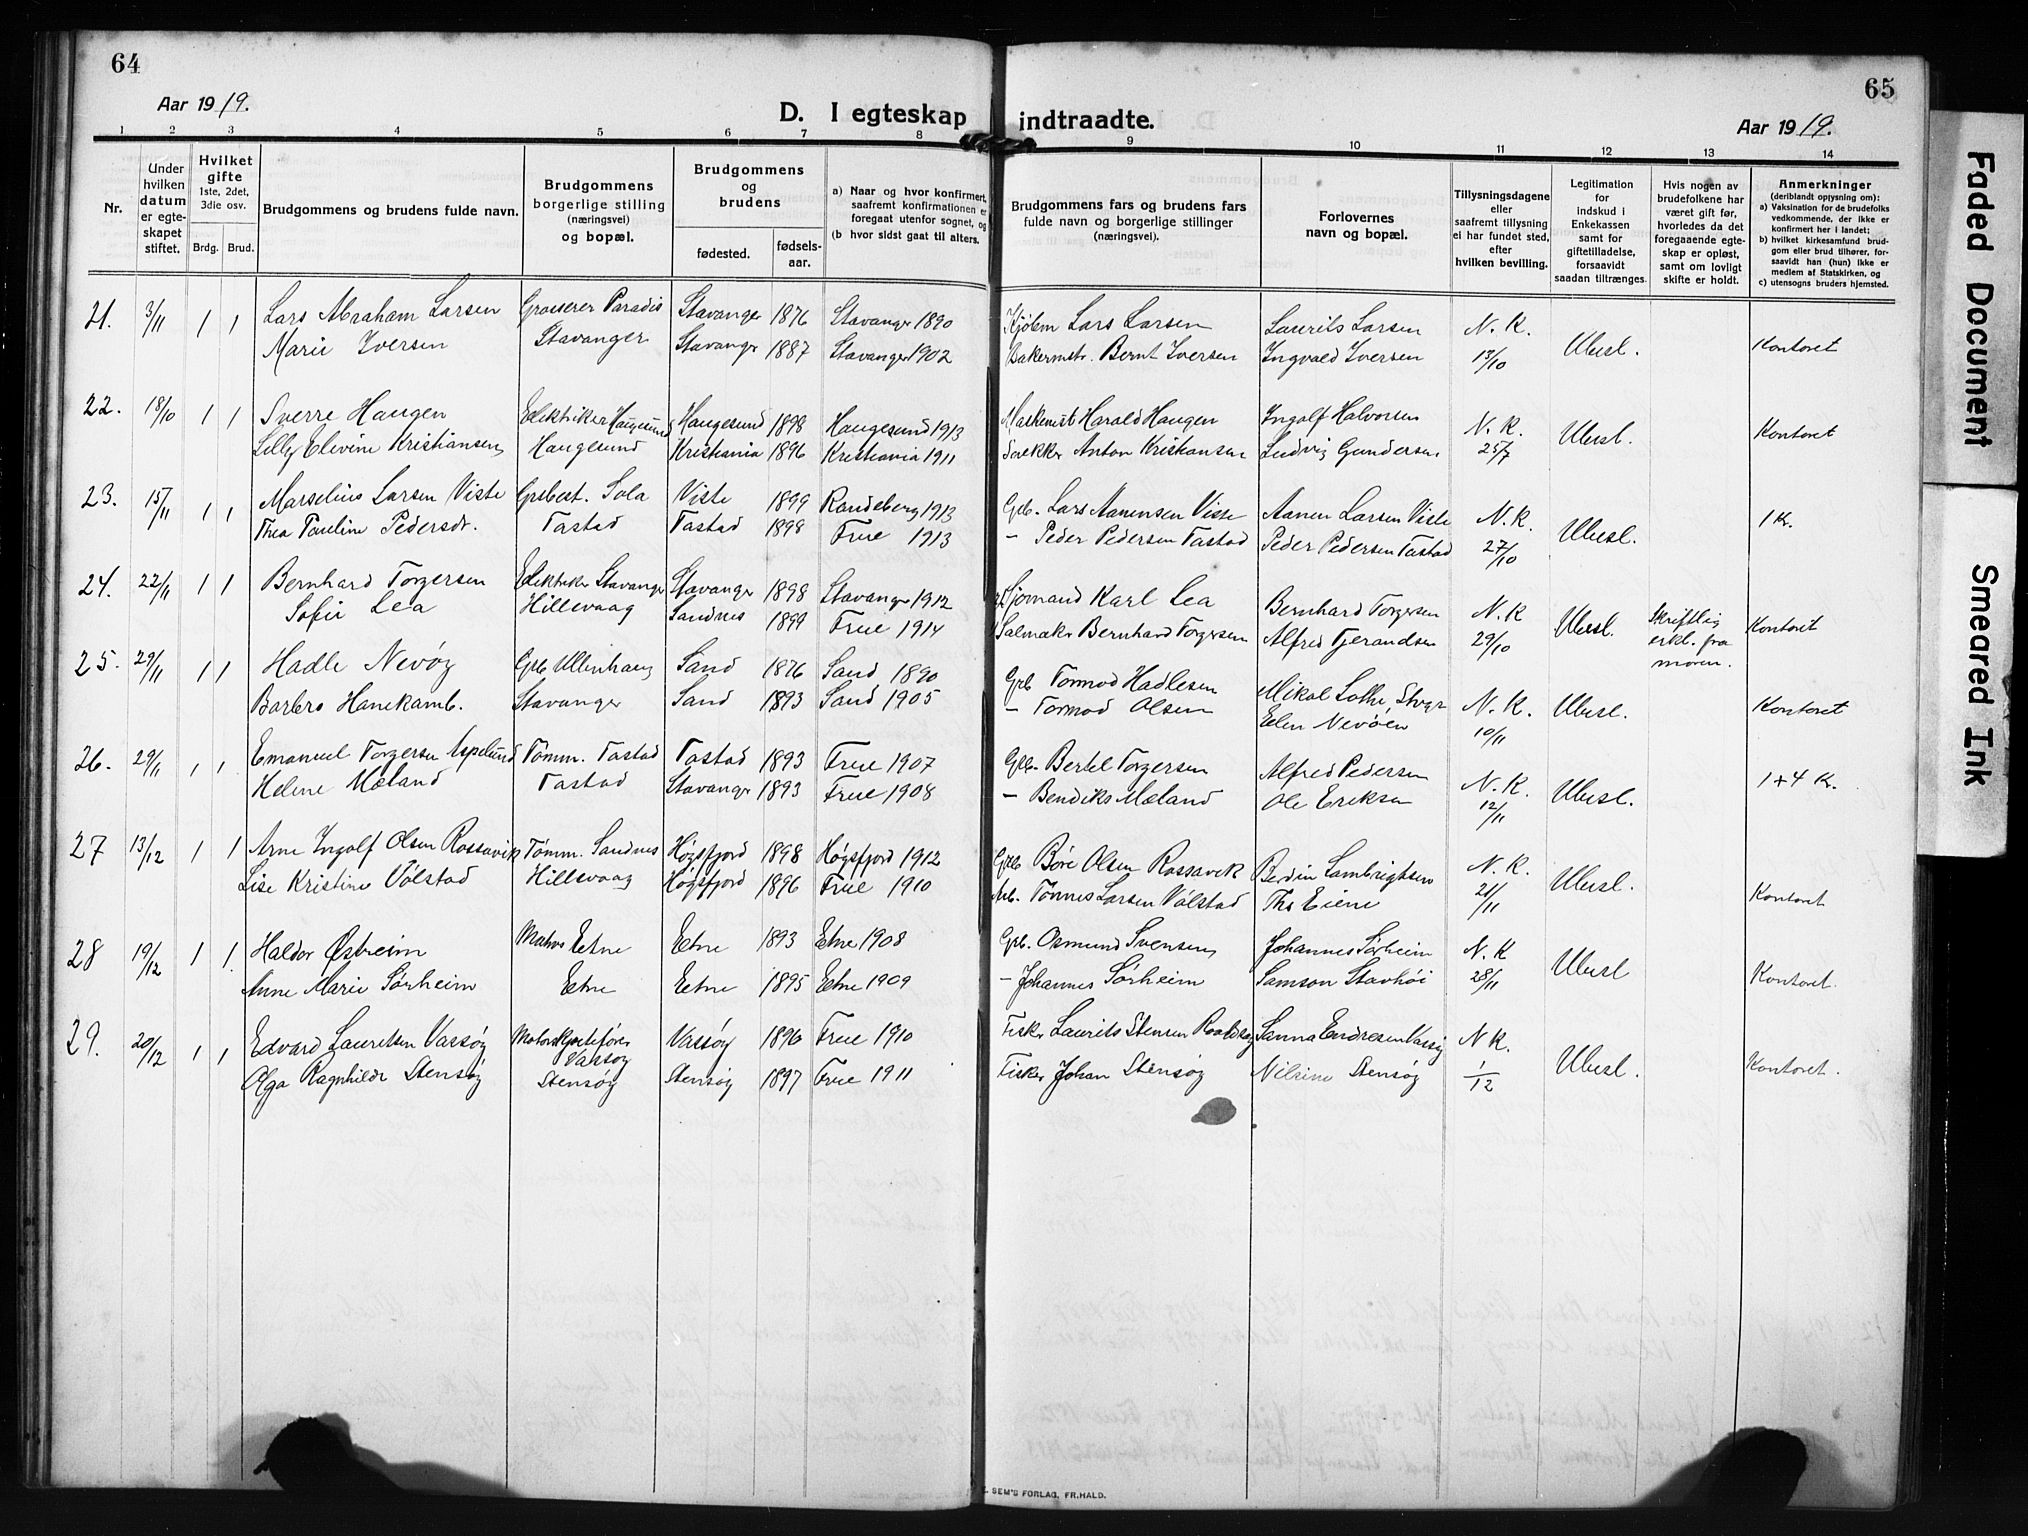 64
65
Aar 1919.
D. I egteskap indtraadte.
Aar 1919.
1 2 3 4 5 6 7 8 9 10 11 12 13 14
Nr.
Under hvilken datum er egteskapet stiftet.
Hvilket gifte
1ste, 2det, 3die osv.
Brdg. Brud.
Brudgommens og brudens fulde navn.
Brudgommens borgerlige stilling (næringsvei) og bopæl.
Brudgommens og brudens
fødested. fødselsaar.
a) Naar og hvor konfirmert, saafremt konfirmationen er foregaat utenfor sognet, og
(b hvor sidst gaat til alters.
Brudgommens fars og brudens fars fulde navn og borgerlige stillinger (næringsvei).
Forlovernes navn og bopæl.
Tillysningsdagene eller saafremt tillysning ei har fundet sted, efter hvilken bevilling.
Legitimation for indskud i Enkekassen samt for giftetilladelse, forsaavidt saadan tiltrænges.
Hvis nogen av brudefolkene har været gift før, hvorledes da det foregaaende egteskap er opløst, samt om lovligt skifte er holdt.
Anmerkninger
(deriblandt oplysning om):
a) Vaksination for de brudefolks vedkommende, der ikke er konfirmert her i landet;
b) hvilket kirkesamfund brudgom eller brud tilhører, forsaavidt han (hun) ikke er medlem af Statskirken, og
c) utensogns bruders hjemsted.
21. 3/11 1 1 Lars Abraham Larsen Grosserer Paradis Stavanger 1876 Stavanger 1890 Kjøbm Lars Larsen Laurits Larsen N. K.
Marie Iversen Stavanger Stavanger 1887 Stavanger 1902 Bakermstr. Bernt Iversen Ingvald Iversen 13/10 Ubesl. Kontoret
22. 18/10 1 1 Sverre Haugen Elektriker Haugesund Haugesund 1898 Haugesund 1913 Maskenist Harald Haugen Ingolf Halvorsen N. K.
Lilly Elevine Kristiansen Haugesund Kristiania 1896 Kristiania 1911 Anton Kristiansen Ludvig Gundersen 25/7 Ubesl. Kontoret
23. 15/11 1 1 Marselius Larsen Viste Grbest. Sola Viste 1899 Randeberg 1913 Grb. Lars Aanensen Viste Aanen Larsen Viste N. K.
Thea Paulin Pedersdr. Tastad Tastad 1898 Frue 1913 - Peder Pedersen Tastad Peder Pedersen Tastad 27/10 Ubesl. 1 Kr.
24. 22/11 1 1 Bernhard Torgersen Elektriker Stavanger Stavanger 1898 Stavanger 1912 Sjømand Karl Lea Bernhard Torgersen N. K
Sofie Lea Hillevaag Sandnes 1899 Frue 1914 Salmakr Bernhard Torgersen Alfred Tjerandsen 29/10 Ubesl. Skriftlig erkl. fra moren. Kontoret
25. 29/11 1 1 Hadle Nevøy Grb Ullenhaug Sand 1876 Sand 1890 Grb Tormod Hadlesen Mikal Lothe, Stvgr N. K.
Barbro Hanekamb. Stavanger Sand 1893 Sand 1905 - Tormod Olsen Elen Nevøen 10/11 Ubesl. Kontoret
26. 29/11 1 1 Emanuel Torgersen Aspelund Tømm. Tastad Tastad 1893 Frue 1907 Grb. Bertel Torgersen Alfred Pedersen N. K.
Helene Mæland Tastad Stavanger 1893 Frue 1908 - Bendiks Mæland Ole Eriksen 12/11 Ubesl. 1+4 Kr.
27 13/12 1 1 Arne Ingolf Olsen Rossavik Tømm. Sandnes Høgsfjord 1898 Høgsfjord 1912 Grb Børe Olsen Rossavik Berdin Lambrigtsen N. K.
Lise Kristine Vølstad Hillevaag Høgsfjord 1896 Frue 1910 Arb. Tønnes Larsen Vølstad Ths Eiene 21/11 Ubesl. Kontoret
28 19/12 1 1. Haldor Østreim Matros Etne Etne 1893 Etne 1908 Grb. Osmund Svensen Johannes Sørheim N. K
Anne Marie Sørheim Etne Etne 1895 Etne 1909 - Johannes Sørheim Samson Stavhøi 28/11 Ubesl Kontoret.
29. 20/12 1 1 Edvard Lauretsen Vassøy Vassøy Vassøy 1896 Frue 1910 Fisker Laurits Stensen Sanna Endresen Vassøy N K.
Olga Ragnhilde Stensøy Stensøy Stensøy 1897 Frue 1911 Fisker Johan Stensøy Nilsine Stensøy 1/12 Ubesl. Kontoret.
SEM'S FORLAG, FR.HALD.
Faded Document
Smeared Ink